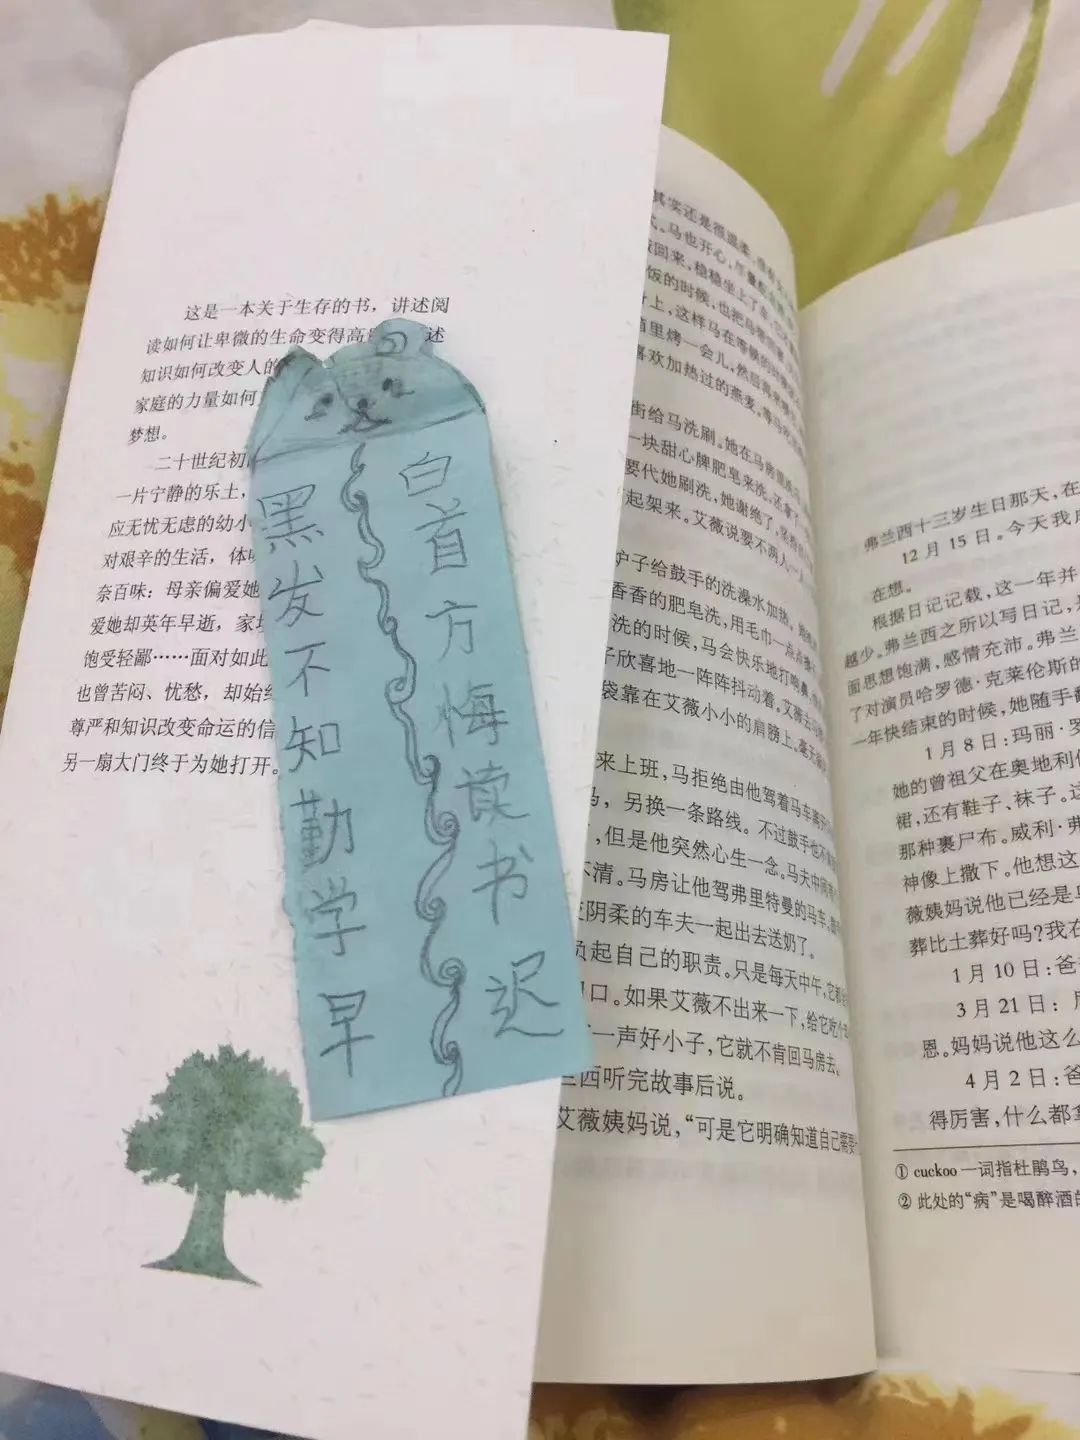 这是一本关于生存的书，讲述阅
读如何让卑微的生命变得高
述
知识如何改变人的
家庭的力量如何
梦想。
二十世纪初
一片宁静的乐土，
应无忧无虑的幼小
对艰辛的生活，体
奈百味：母亲偏爱她
爱她却英年早逝，家
饱受轻鄙……面对如此
也曾苦闷、忧愁，却始终
尊严和知识改变命运的信
另一扇大门终于为她打开。
黑发不知勤学早
白首方悔读书迟
其实还是很温柔，
。马也开心，尽量
回来，稳稳坐上了车，
饭的时候，也把马
上，这样马在等候的时
里烤一会儿，然后再
喜欢加热过的燕麦。等马吃
街给马洗刷。她在马房里
一块甜心牌肥皂来洗，还拿了一
要代她刷洗，她谢绝了，坚
起架来。艾薇说要不两人一人
炉子给鼓手的洗澡水加热。
香香的肥皂洗，用毛巾一点点擦
洗的时候，马会快乐地打响鼻，
子欣喜地一阵阵抖动着。艾薇
袋靠在艾薇小小的肩膀上。毫无
来上班，马拒绝由他驾着马车离开
马，另换一条路线。不过鼓手也不
，但是他突然心生一念。马夫中间有
不清。马房让他驾弗里特曼的马车。
阴柔的车夫一起出去送奶了。
负起自己的职责。只是每天中午，它都
口。如果艾薇不出来一下，给它吃个
一声好小子，它就不肯回马房去。
兰西听完故事后说。
艾薇姨妈说，“可是它明确知道自己需要
弗兰西十三岁生日那天，在
12月15日。今天我
在想。
根据日记记载，这一年并
越少。弗兰西之所以写日记，
面思想饱满，感情充沛。弗兰
了对演员哈罗德·克莱伦斯的
一年快结束的时候，她随手翻
1月8日：玛丽·罗
她的曾祖父在奥地利
裙，还有鞋子、袜子。这
那种裹尸布。威利·弗
神像上撒下。他想这
薇姨妈说他已经是
葬比土葬好吗？我在
1月10日：爸
3月21日：
恩。妈妈说他这么
4月2日：爸
得厉害，什么都
① cuckoo一词指杜鹃鸟，
② 此处的“病”是喝醉酒的